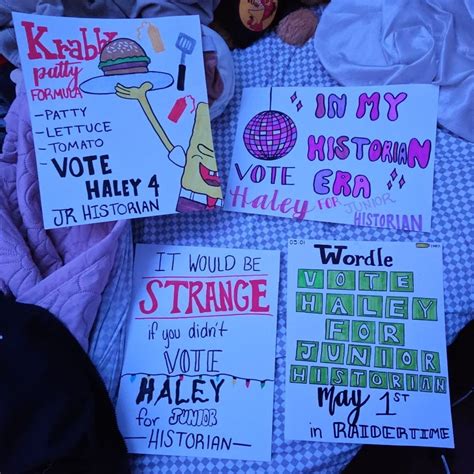 Krabby
patty
FORMULA
-PATTY
-LETTUCE
-TOMATO
-VOTE
HALEY 4
JR HISTORIAN
IN MY
HISTORIAN
ERA
VOTE
Haley FOR JUNIOR
HISTORIAN
IT WOULD BE
STRANGE
if you didn't
VOTE
HALEY
for JUNIOR
-HISTORIAN-
Wordle
VOTE
HALEY
FOR
JUNIOR
HISTORIAN
May 1ST
in RAIDERTIME